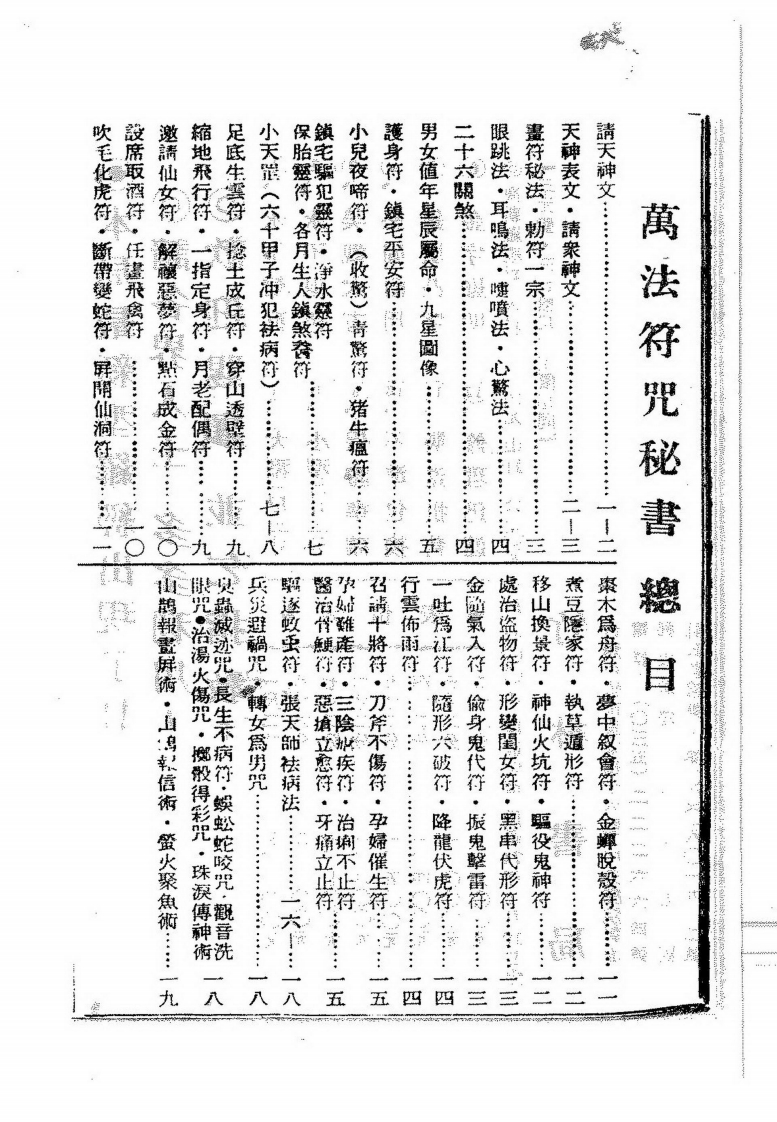 萬法符咒秘書總目
請天神文……一–二
天神表文·請衆神文……二–三
畫符秘法·勅符一宗……三
眼跳法·耳鳴法·嚏噴法·心驚法……四
二十六關煞……四
男女値年星辰屬命·九星圖像……五
護身符·鎮宅平安符……六
小兒夜啼符·（收驚）青驚符·猪牛瘟符……六
鎮宅驅犯靈符·淨水靈符
保胎靈符·各月生人鎮煞符……七
小天罡（六十甲子冲犯袪病符）……七–八
足底生雲符·捻土成丘符·穿山透壁符……九
縮地飛行符·一指定身符·月老配偶符……九
邀請仙女符·解禳惡夢符·點石成金符……一〇
設席取酒符·任畫飛禽符……一〇
吹毛化虎符·斷帶變蛇符·屏開仙洞符……一一
棗木爲舟符·夢中叙會符·金蟬脫殼符……一一
煮豆隱家符·執草遁形符……一二
移山換景符·神仙火坑符·驅役鬼神符……一二
處治盜物符·形變閨女符·黑串代形符……一三
金隨氣入符·偸身鬼代符·振鬼擊雷符……一三
一吐爲江符·隨形六破符·降龍伏虎符……一四
行雲佈雨符……一四
召請十將符·刀斧不傷符·孕婦催生符……一五
孕婦難產符·三陰瘧疾符·治痢不止符
醫治骨鯁符·惡搶立愈符·牙痛立止符……一五
驅逐蚊虫符·張天師袪病法……一六–一八
兵災避禍咒·轉女爲男咒……一八
臭蟲滅迹咒·長生不病符·蜈蚣蛇咬咒·觀音洗
眼咒·治湯火傷咒·擲骰得彩咒·珠淚傳神術……一八
山鵲報畫屏術·山鵲報信術·螢火聚魚術……一九